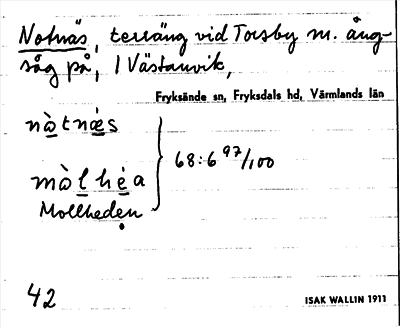 Notnäs, terräng vid Torsby m. ång-
såg på, 1 Västanvik,
Fryksände sn, Fryksdals hd, Värmlands län
nòtnæ̀s
mòlhèa
68:6 97/100
Mollheden
42
ISAK WALLIN 1911